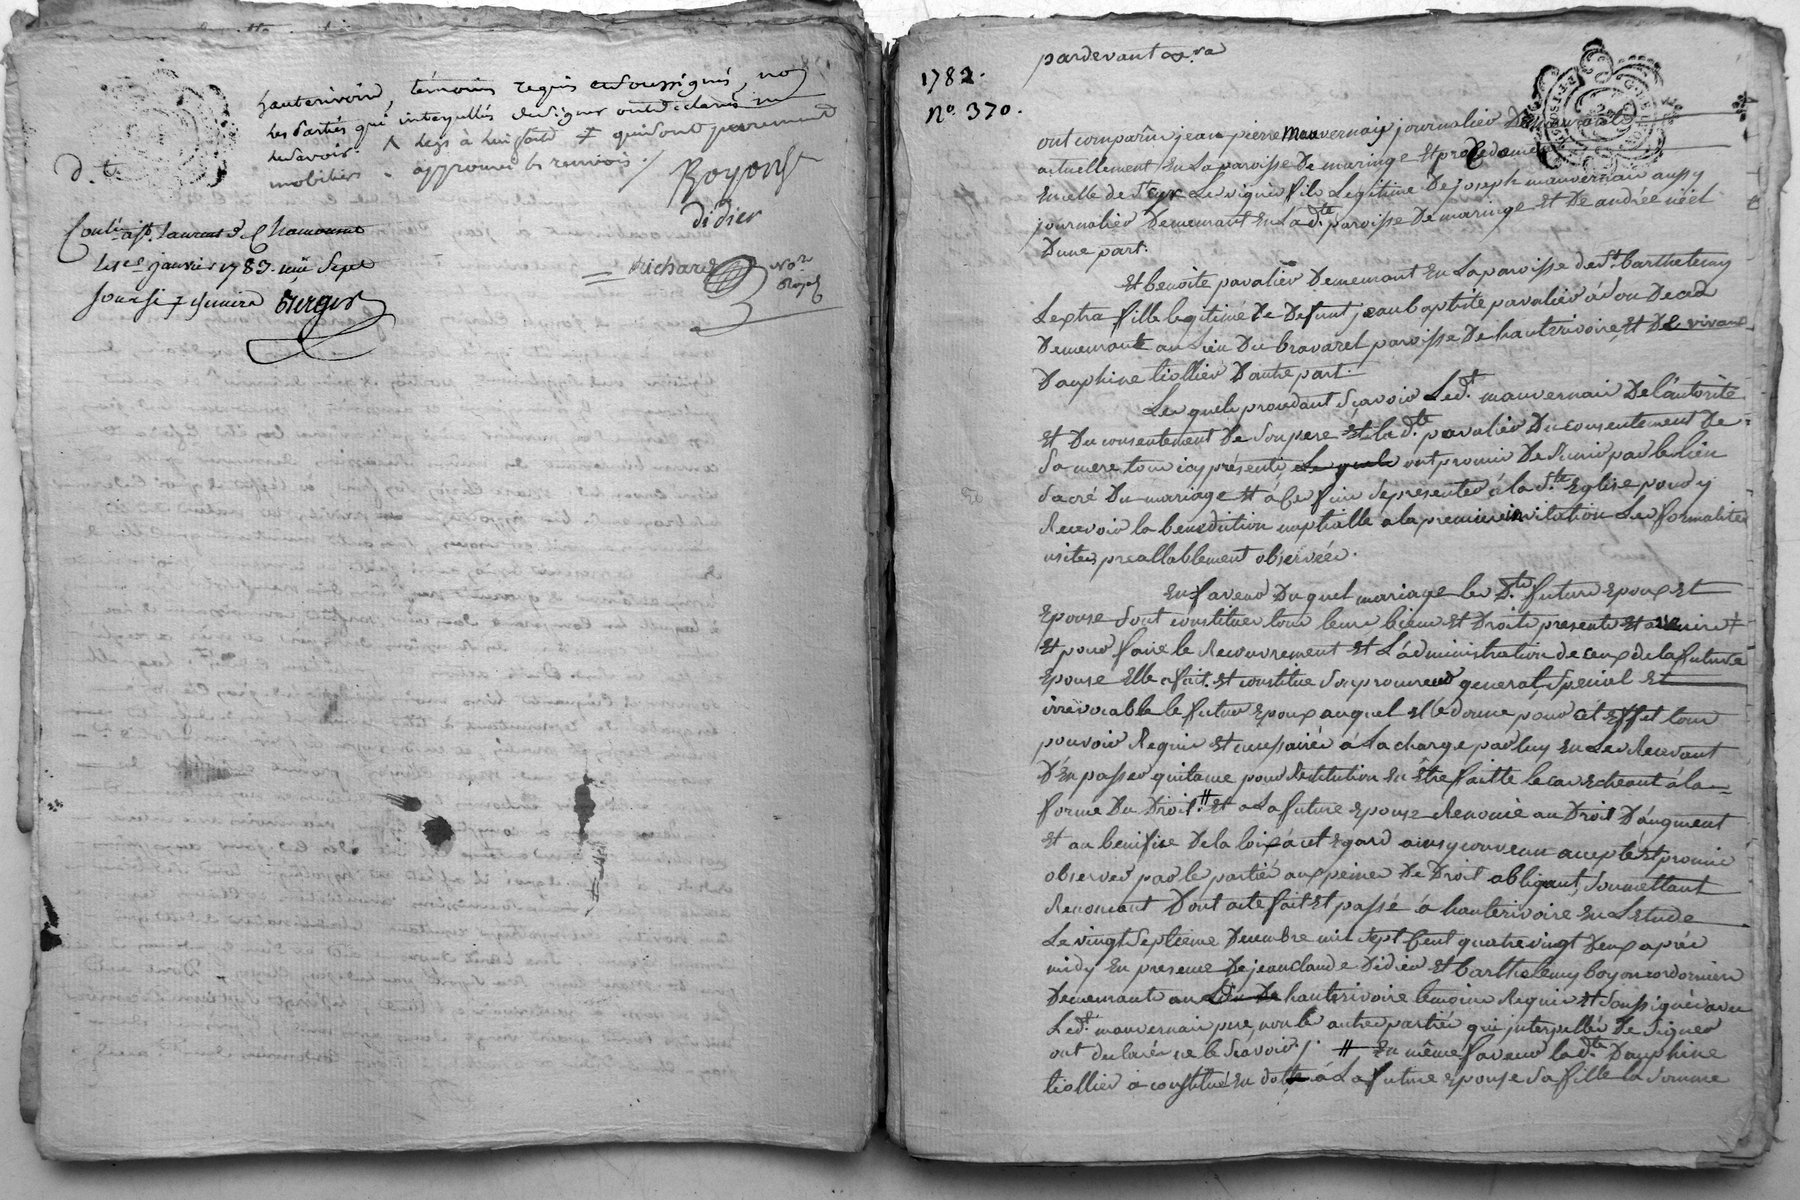 hauterivoire, témoins requis et soussignés, non
les partiés qui interpellés de signer ont declarés ne
le savoir. qui sont purement
mobiliers approuvé les renvois ./.
d. te
Boyont
didier
Richard
Not. Royal
Conlé a St. Laurent d Chamousset
le janvier 1783. reçu sept
Berger
1782.
N° 370.
pardevant &.ra
ont comparûn jean pierre mauvernay journalier Demeurant
actuellement En La paroisse De maringe Et precedament
En celle de St. Cyr Les vignes fils Legitime De joseph mauvernai aussy
journalier Demeurant En La d.te paroisse De maringe Et De andrée néel
D'une part.
Et benoite pavalier Demeurant En La paroisse de St. barthelemy
Lextra fille legitime De Defunt jean baptiste pavalier à son Deced
Demeurant au Lieu Du bravaret paroisse De hauterivoire, Et De vivant
Dauphine tiollier D'autre part.
Les quels procedant Sçavoir Led.t mauvernai De L'autorité
Et Du consentement De Son pere Et la d.te pavalier Du consentement De
Sa mere tous icy présents Les quels ont promis De S'unir par le lien
Sacré Du mariage Et à Ces fins Se presenter à la Ste Eglise pour y
Recevoir la benediction nuptialle a la premiere invitation Les formalités
usitées preallablement observées.
En faveur Duquel mariage les D.ts future Epoux Et
Epouse Sont constitués tous leurs biens Et Droits presents Et a venir ‡
Et pour faire le Recouvrement Et L'administration de ceux de la future
Epouse Elle a fait Et constitué Son procureur general, Special Et
irrévocable le futur Epoux auquel Elle donne pour cet Effet tous
pouvoir Requis Et necessaires à La charge par luy En Les Recevant
D'En passer quitance pour Restitution En Être faitte le cas Echeant à la
forme Du Droit. # Et a La future Epouse Renoncé au Droit D'augment
Et au benifice De la loix à cet Egard ainsy convenu accepté Et promis
observer par le partiés aux peines De Droit obligeant, Soumettant
Renoncant Dont acte fait Et passé à hauterivoire En L'Etude
Le vingt Septieme Decembre mil Sept Cent quatre vingt Deux après
midy En presence De jean claude Didier Et barthelemy boyon cordonniers
Demeurants au Lieu De hauterivoire temoins Requis Et Soussignés avec
Led.t mauvernai pere, non le autres partiés qui interpellés De Signer
ont declarés ne le Scavoir ./. # En même faveur la d.te Dauphine
tiollier a constitué En dotte à La future Epouse Sa fille la Somme